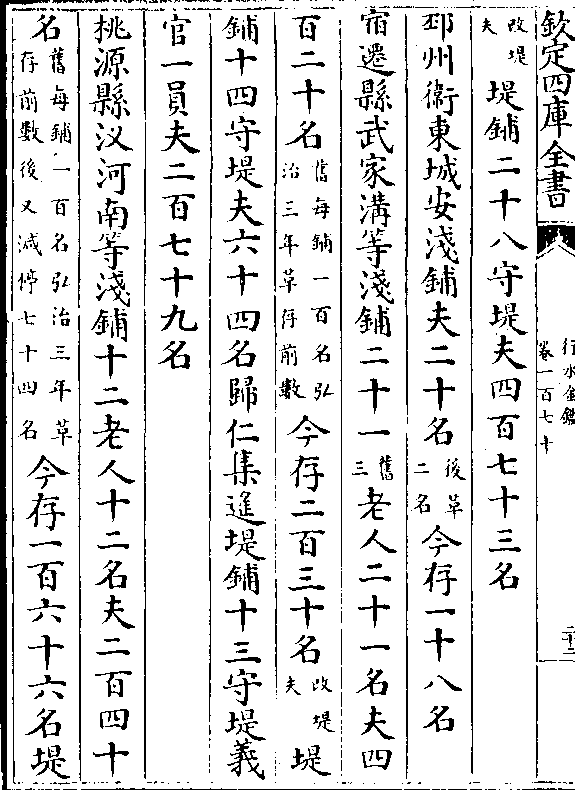 欽定四庫全書
行水金鑑
卷一百七十
二十二
改堤夫堤鋪二十八守堤夫四百七十三名
邳州衛東城安淺鋪夫二十名後革二名今存一十八名
宿遷縣武家溝等淺鋪二十一舊三老人二十一名夫四
百二十名舊每鋪一百名弘治三年革存前數今存二百三十名改堤夫堤
鋪十四守堤夫六十四名歸仁集遥堤鋪十三守堤義
官一員夫二百七十九名
桃源縣汊河南等淺鋪十二老人十二名夫二百四十
名舊每鋪一百名弘治三年革存前數後又減停七十四名今存一百六十六名堤